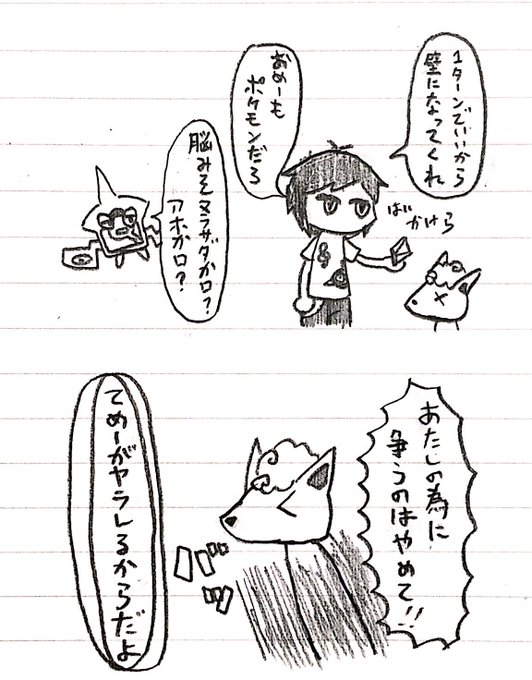 1ターンでいいから
壁になってくれ
おめーも
ポケモンだろ
はい
かけら
脳みそマラサダかロ?
アホかロ?
あたしの為に
争うのはやめて!!
バッ
てめーがヤラレるからだよ